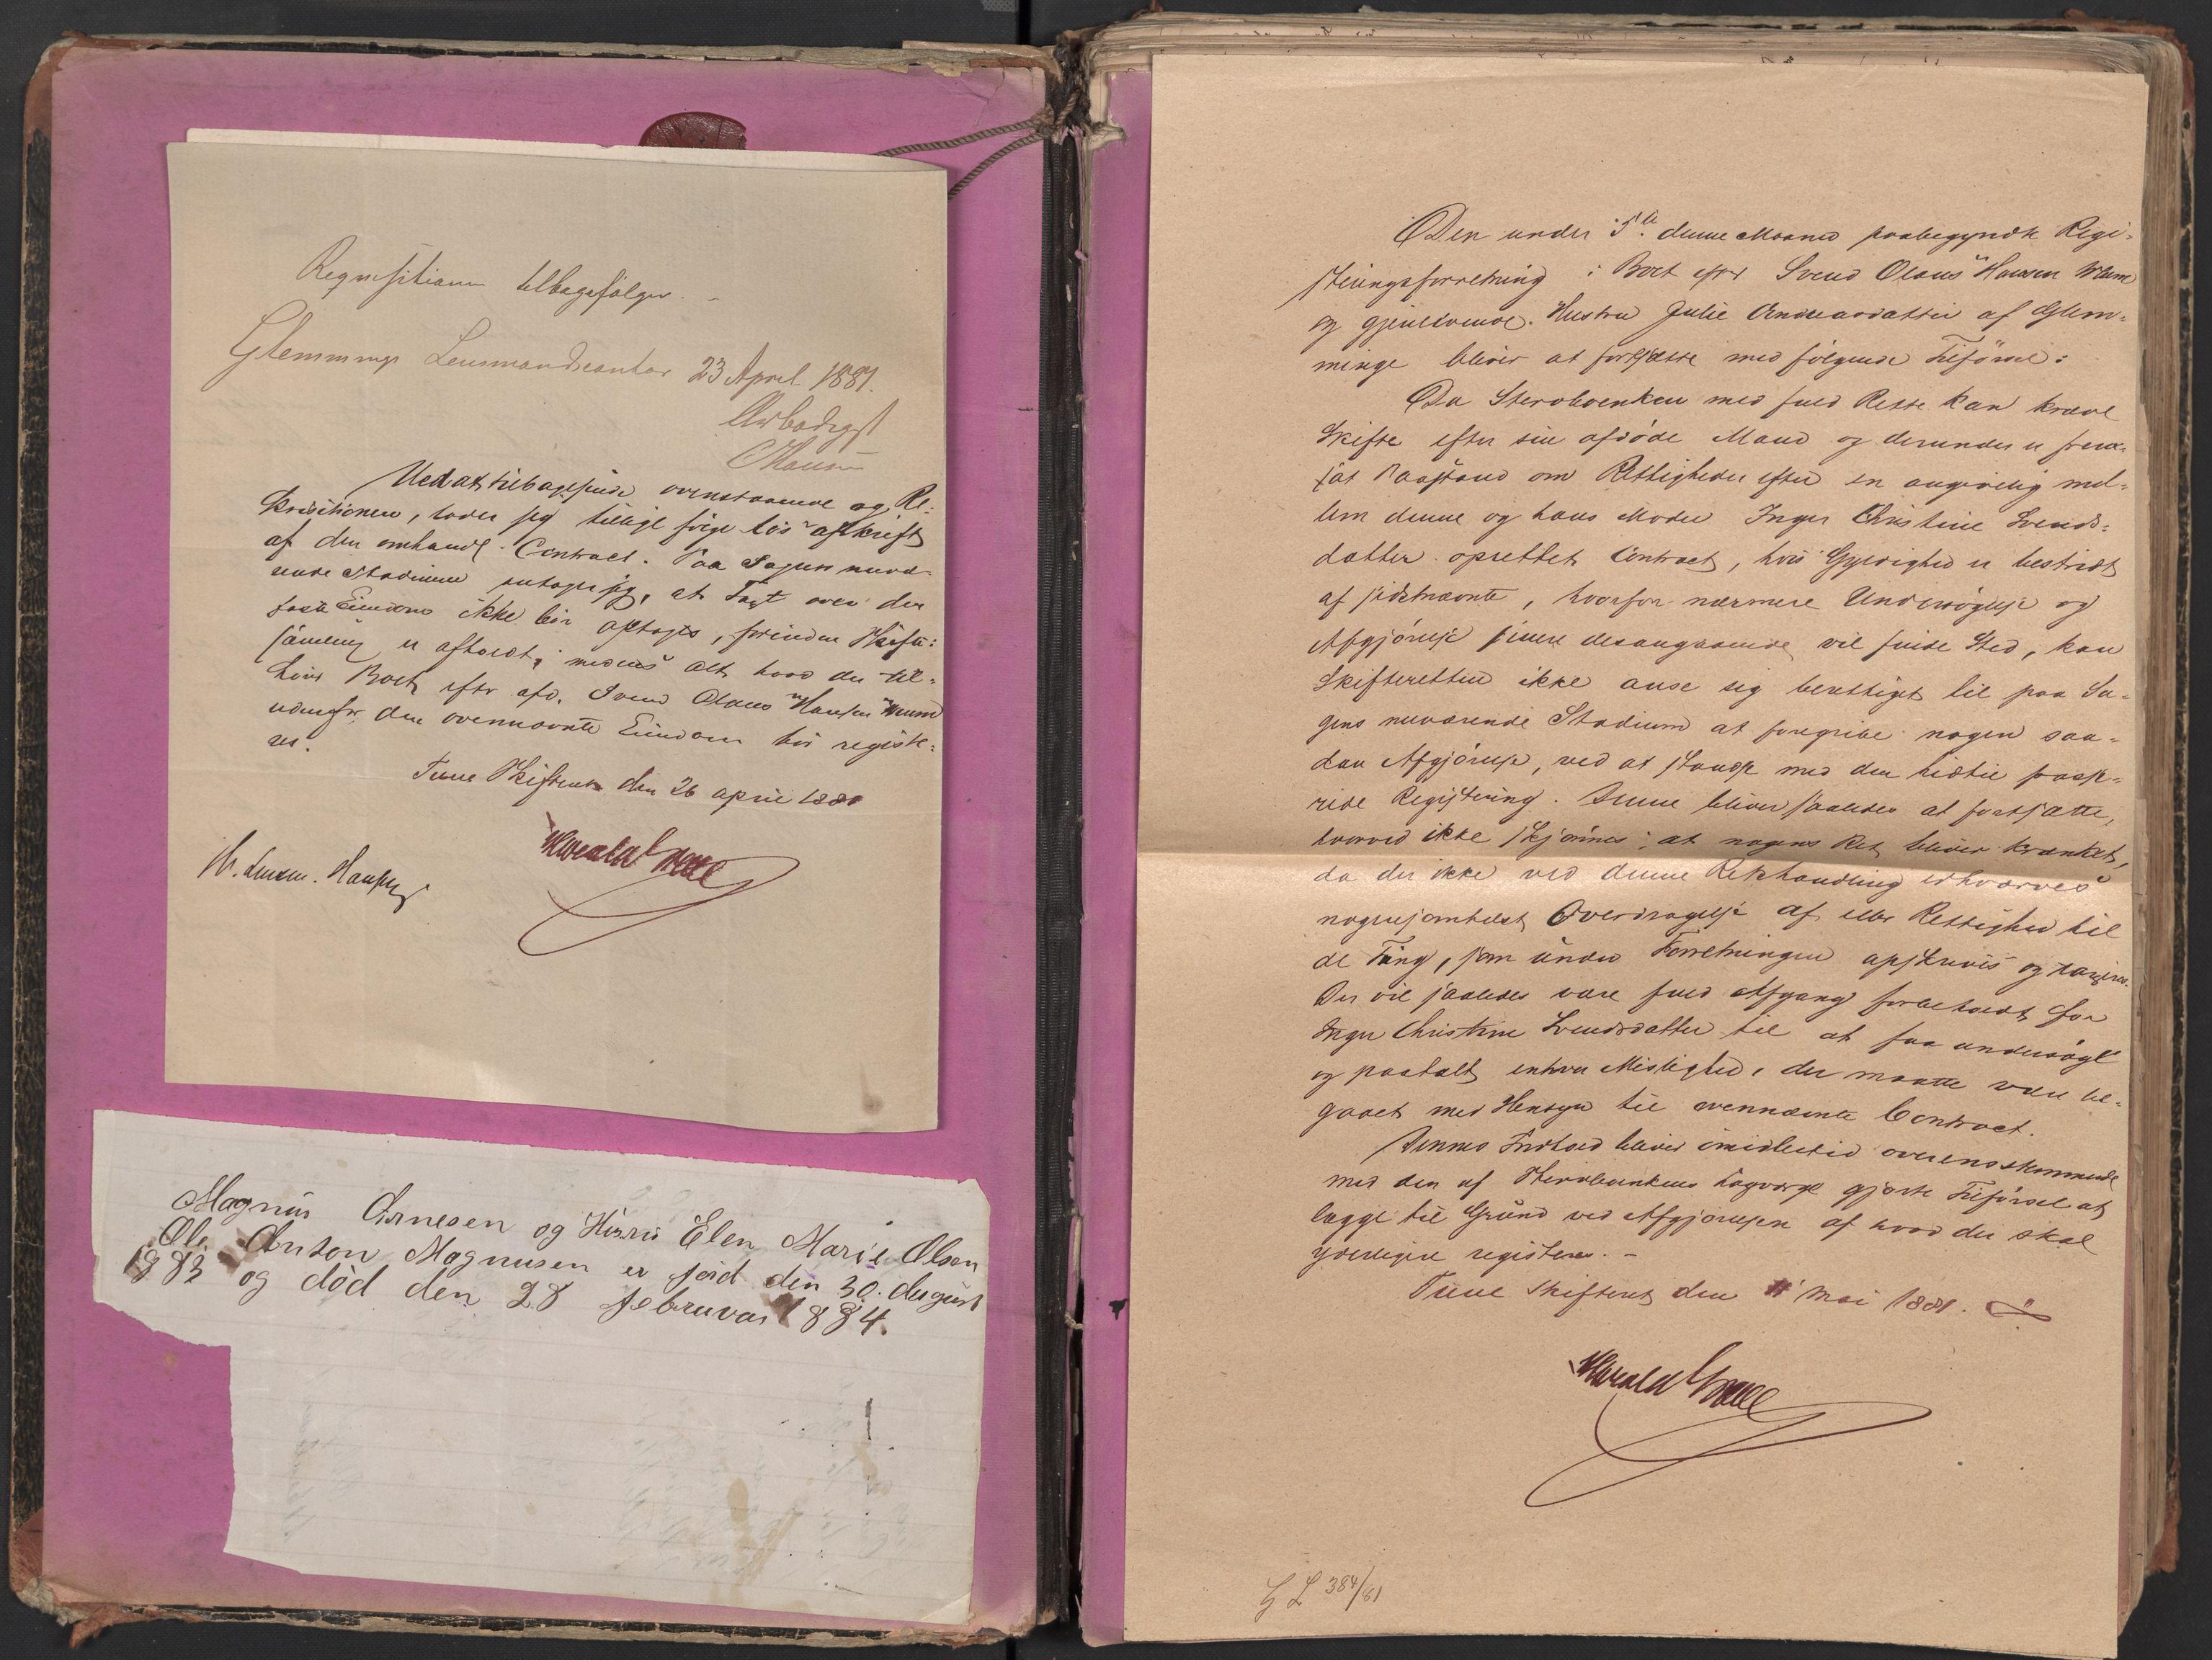 Requisitionen tilbagefølger. –
Glemminge Lensmandscontor 23 April 1881.
Ærbødigst
CHansen
Ved at tilbagesende ovenstaaende og Re-
kvisitionen, lader jeg tillige følge løs afskrift
af den omhandl. Contract. Paa Sagens nuvæ-
rende Stadium antager jeg, at Taxt over den
faste Eiendom ikke bør optages, forinden Skifte-
samling er afholdt, medens alt hvad der til-
hører Boet efter afd. Svend Olaus Hansen Mum
udenfor den ovennævnte Eiendom bør registe-
res.
Tune Skifteret den 26 april 1881
Harald Smell
Hr. Lensm. Hansen
Magnus Arnesen og Hustru Elen Marie Olsen
Ole Anton Magnusen er født den 30. August
1883 og död den 28 februar 1884.
Den under 5te denne Maaned paabegyndte Regi-
steringsforretning i Boet efter Svend Olaus Hansen Mum
og gjenlevende Hustru Julie Andreasdatter af Glem-
minge bliver at fortsætte med følgende Tilførsel:
Da Stervboenken med fuld Rette kan kræve
Skifte efter sin afdøde Mand og derunder er frem-
sat Paastand om Rettigheder efter en angivelig mel-
lem denne og hans Moder Inger Christine Svends-
datter oprettet Contract, hvis Gyldighed er bestridt
af sidstnævnte, hvorfor nærmere Undersøgelse og
Afgjørelse senere desangaaende vil finde Sted, kan
Skifteretten ikke anse sig berettiget til paa Sa-
gens nuværende Stadium at foregribe nogen saa-
dan Afgjørelse, ved at standse med den hidtil paap-
ride Registering. Denne bliver saaledes at fortsætte,
hvorved ikke skjønnes, at nogens Ret bliver krænket,
da der ikke ved denne Retshandling erhverves
nogensomhelst Overdragelse af eller Rettighed til
de Ting, som under Forretningen opskrives og taxeres.
Der vil saaledes være fuld Afgang forbeholdt for
Inger Christine Svendsdatter til at faa undersøgt
og paatalt enhver Mislighed, der maatte være be-
gaaet med Hensyn til ovennævnte Contract.
Dennes Indhold bliver imidlertid overensstemmende
med den af Stervboenkens Lagværge gjorte Tilførsel at
lægge til Grund ved Afgjørelsen af hvad der skal
yderligere registeres. –
Tune Skifteret den 11 Mai 1881.
Harald Smell
G L 384/81